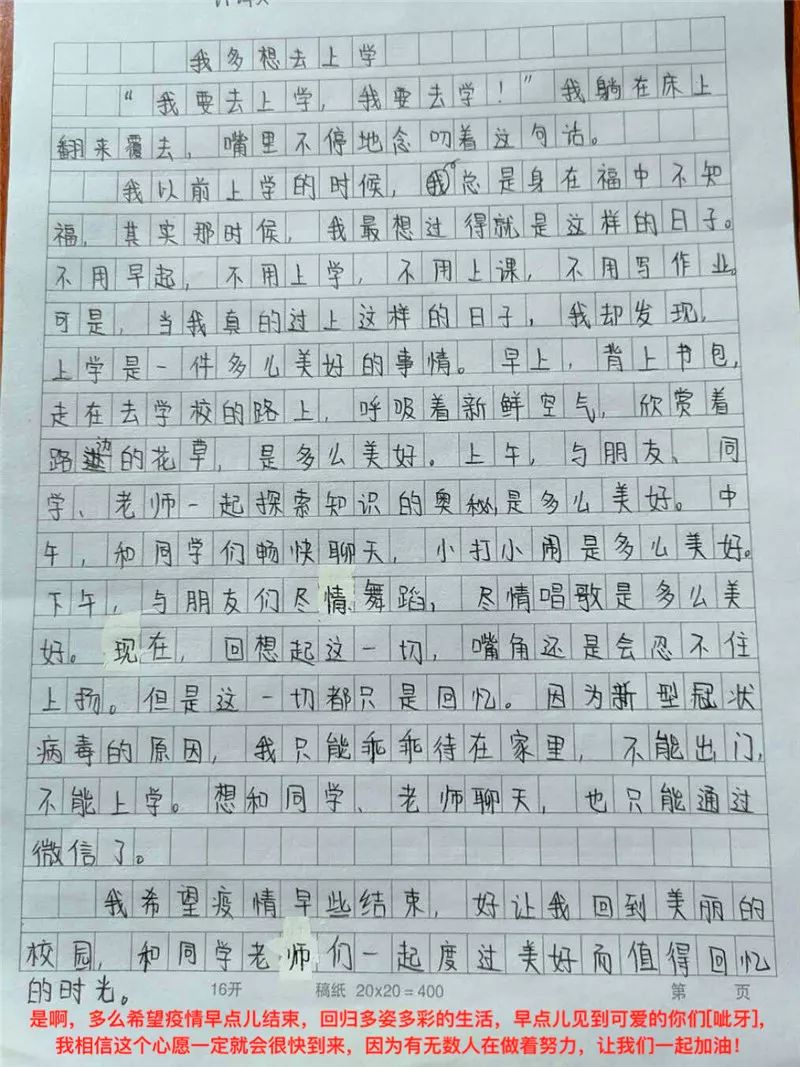 我多想去上学
“我要去上学，我要去学！”我躺在床上
翻来覆去，嘴里不停地念叨着这句话。
我以前上学的时候，我总是身在福中不知
福，其实那时候，我最想过得就是这样的日子。
不用早起，不用上学，不用上课，不用写作业。
可是，当我真的过上这样的日子，我却发现，
上学是一件多么美好的事情。早上，背上书包，
走在去学校的路上，呼吸着新鲜空气，欣赏着
路边的花草，是多么美好。上午，与朋友、同
学、老师一起探索知识的奥秘，是多么美好。中
午，和同学们畅快聊天，小打小闹是多么美好。
下午，与朋友们尽情舞蹈，尽情唱歌是多么美
好。现在，回想起这一切，嘴角还是会忍不住
上扬。但是这一切都只是回忆。因为新型冠状
病毒的原因，我只能乖乖待在家里，不能出门，
不能上学。想和同学、老师聊天，也只能通过
微信了。
我希望疫情早些结束，好让我回到美丽的
校园，和同学老师们一起度过美好而值得回忆
的时光。
16开 稿纸 20×20=400 第 页
是啊，多么希望疫情早点儿结束，回归多姿多彩的生活，早点儿见到可爱的你们[呲牙]，
我相信这个心愿一定就会很快到来，因为有无数人在做着努力，让我们一起加油！